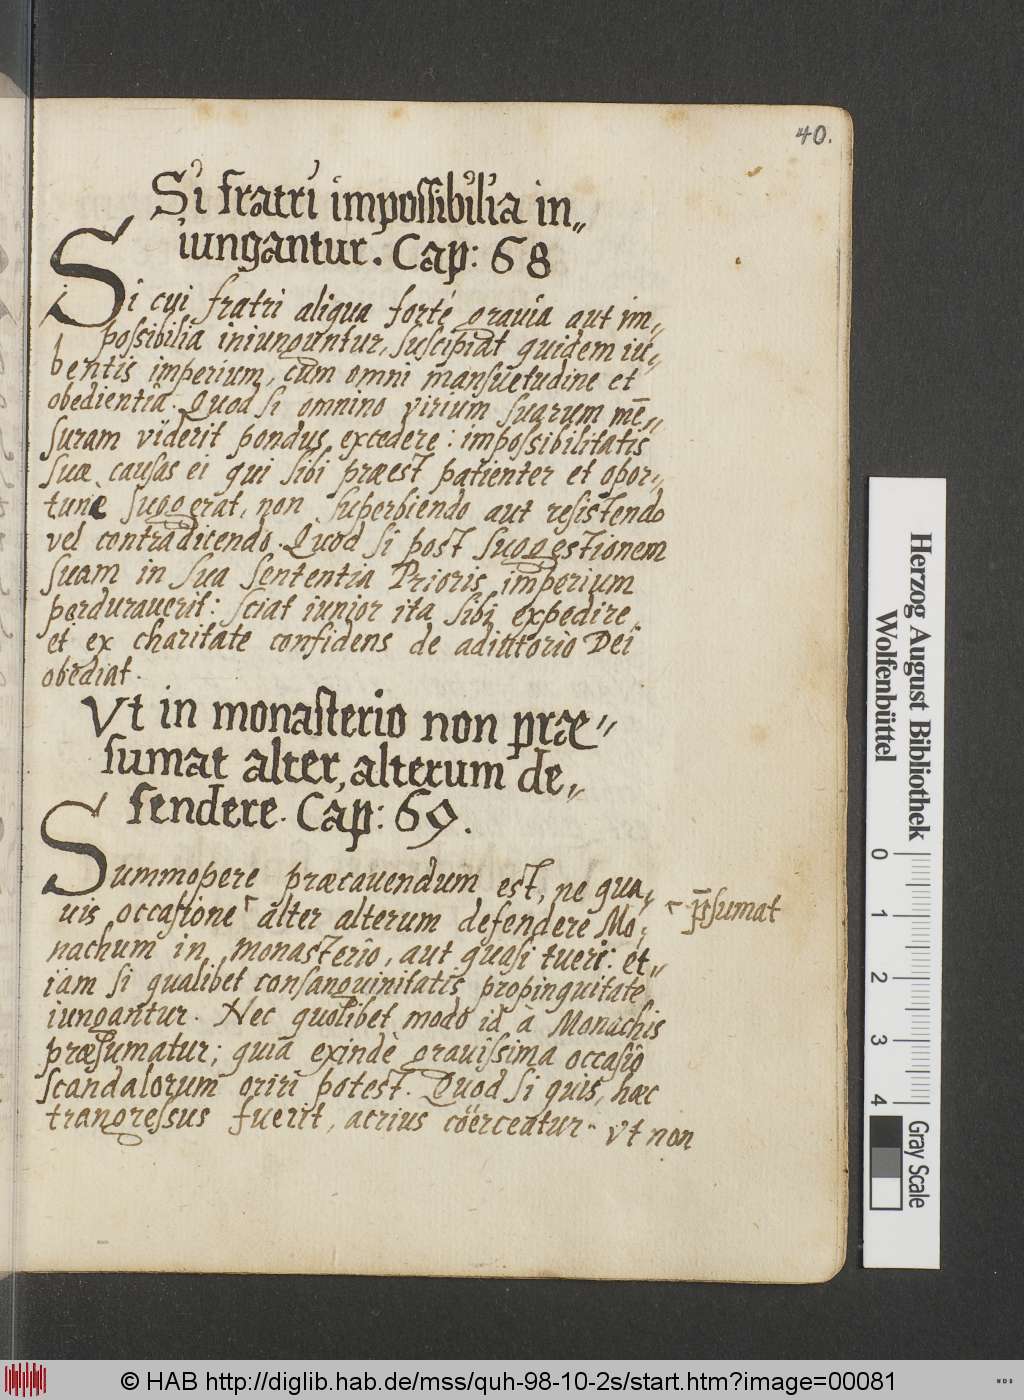 40.
Si fratri impossibilia in„
iungantur. Cap: 68
Si cui fratri aliqua fortè gravia aut im„
possibilia iniunguntur, suscipiat quidem iu„
bentis imperium, cum omni mansuetudine et
obedientia. Quod si omnino virium suarum mē„
suram viderit pondus excedere: impossibilitatis
suæ causas ei qui sibi præest patienter et opor„
tunè suggerat, non superbiendo aut resistendo
vel contradicendo. Quod si post suggestionem
suam in sua sententia Prioris imperium
perduraverit: sciat iunior ita sibi expedire
et ex charitate confidens de adiutorio Dei
obediat.
Vt in monasterio non præ„
sumat alter, alterum de„
fendere. Cap: 69.
Summopere præcavendum est, ne qua„
vis occasione ⌜ alter alterum defendere Mo„
⌜ p̄sumat
nachum in monasterio, aut quasi tueri: et„
iam si qualibet consanguinitatis propinquitate
iungantur. Nec quolibet modo id à Monachis
præsumatur; quia exindè gravissima occasio
scandalorum oriri potest. Quod si quis, hæc
trangressus fuerit, acrius cöerceatur. Vt non
Herzog August Bibliothek
Wolfenbüttel
0 1 2 3 4
Gray Scale
© HAB http://diglib.hab.de/mss/quh-98-10-2s/start.htm?image=00081